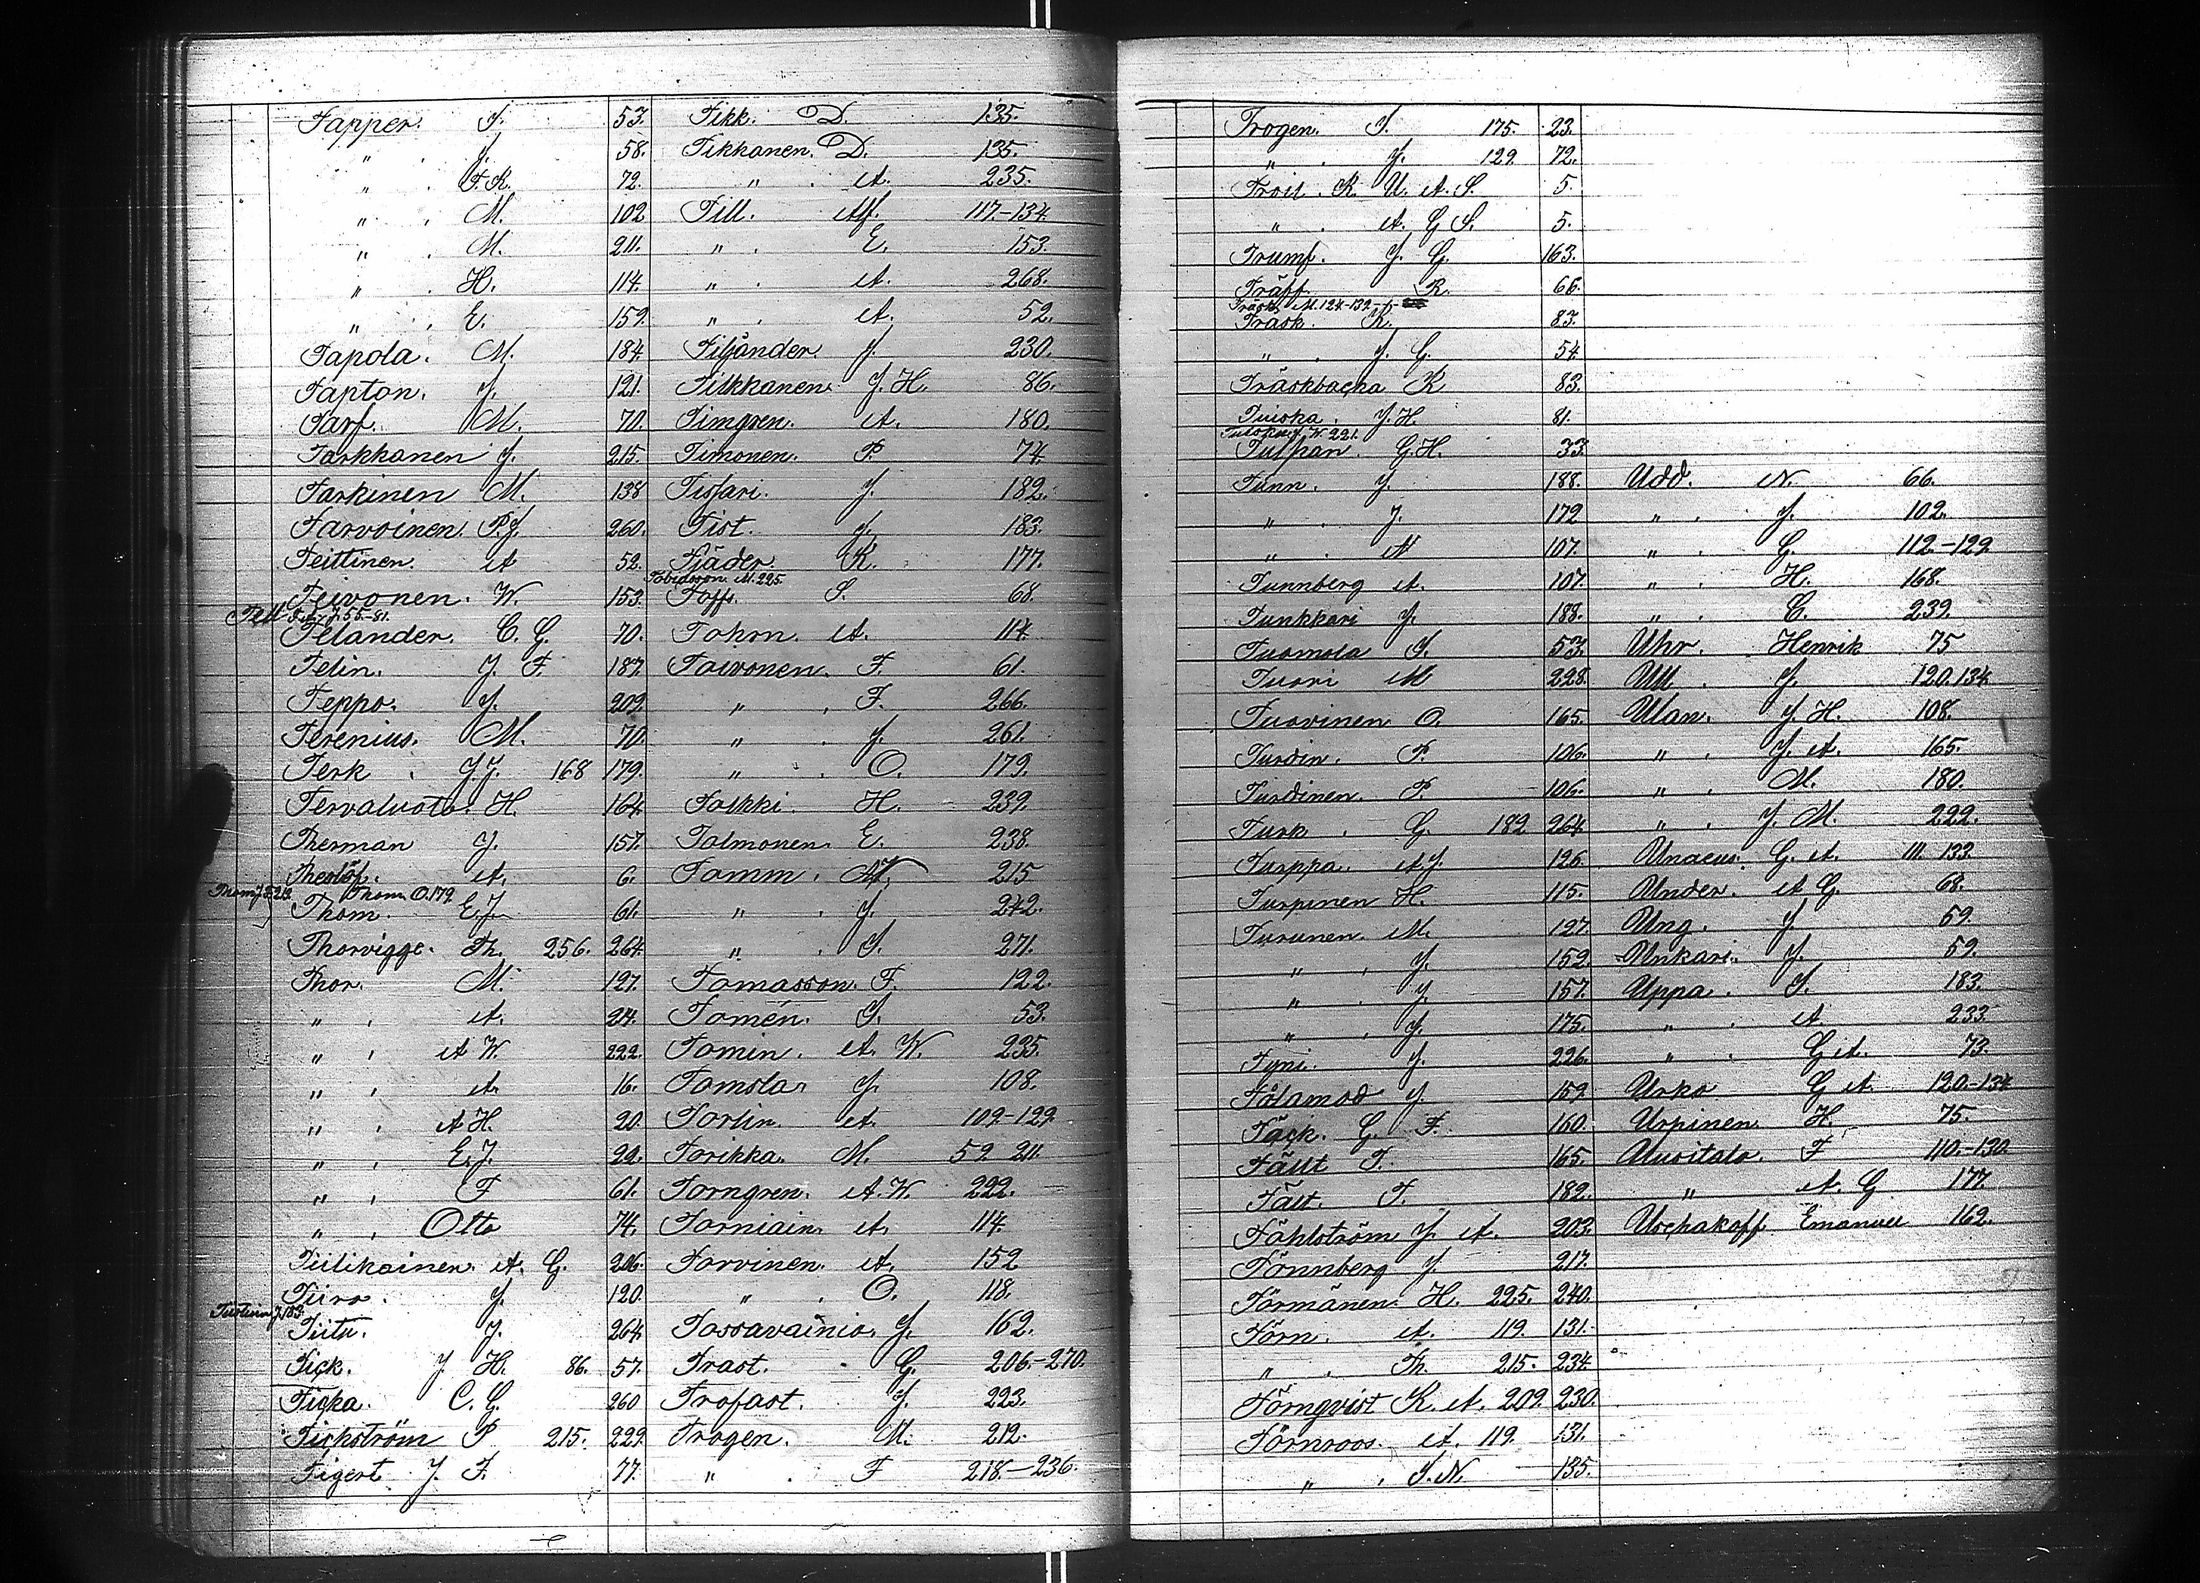 Tapper. S. 53.
" . J. 58.
" . F. K. 72.
" . M. 102
" . M. 211.
" . H. 114.
" . E. 159.
Tapola. M. 184.
Tapton. J. 121.
Tarf. M. 70.
Tarkkanen J. 215.
Tarkinen M. 138
Tarvoinen. P. J. 260.
Teittinen. A 52.
Teivonen. W. 153.
Tell J. 55.-81.
Telander. C. G. 70.
Telin. J. F. 187.
Teppo. J. 209.
Terenius. M. 70.
Terk . J. J. 168 179.
Tervaluoto. H. 164.
Therman J. 157.
Theslöf. A. 6.
Thom O. 179.
Thom. E. J. 61.
Thorvigge. Th. 256. 264.
Thor. M. 197.
" . A. 214.
" . A W. 222.
" . A. 16.
" . A H. 20.
" . E. J. 22.
" . F 61.
" . Otto 74.
Tiilikainen. A. G. 206.
Tiira. J. 120.
Tiitu. J. 264.
Tick. J H. 86. 57.
Ticka. C. G. 260
Tickström P 215. 229.
Tigert J. F. 77.
Tikk. D. 135.
Tikkanen. D. 135.
" . A. 235.
Till. Alf. 117.-134.
" . E. 153.
" . A. 268.
" . A. 52.
Tiljander. J. 230.
Tilkkanen. J. H. 86.
Timgren. A. 180.
Timonen. P. 74.
Tissari. J. 182.
Tist. J. 183.
Tjäder. K. 177.
Tobiasson M. 225.
Toffs. S. 68.
Tohon. A. 114.
Toivonen. F. 61.
" . F. 266.
" . J. 261.
" . O. 179.
Tolkki. H. 239.
Tolmonen. E. 238.
Tomm. M. 215
" . J. 242.
" . S. 271.
Tomasson. F. 122.
Tomén. S. 53.
Tomin. A. W. 235.
Tomola. J. 108.
Torlin. A. 109.-129.
Torikka. M. 59. 211.
Torngren. A. W. 222.
Torniain. A. 114.
Torvinen. A. 152
" . O. 118.
Tossavainio. J. 162.
Trast. G. 206.-270.
Trofast. J. 223.
Trogen. M. 212.
" . F 218.-236.
Trogen. S. 175. 23.
" . J. 129. 72.
Troil. K. U. A. S. 5.
" . A. G S. 5.
Trumf. J. G. 163.
Träff. K. 66.
Träsk. M. 124.-132.
Träsk. K. 83.
" . J. G. 54.
Träskbacka K 83.
Tuiska. J. H. 81.
Tulpan. G. H. 33.
Tunn. J. 188.
" . J. 172
" . N 107.
Tunnberg A. 107.
Tunkkari J. 188.
Tuomola S. 53.
Tuori M 228.
Tuovinen O. 165.
Turdin. P. 106.
Turdinen. P. 106.
Turk . G. 182 264.
Turppa. A. J. 126.
Turpinen H. 115.
Turunen. M. 197.
" . J. 152.
" . J. 157.
" . J. 175.
Tyni. J. 226.
Tålamod J 159.
Täck. G. F. 160.
Tällt F. 165.
Tält. F. 182.
Tählström J. A. 203.
Tönnberg J. 217.
Törmänen. H. 225. 240.
Törn. A. 119. 131.
" . Th. 215. 234.
Törnqvist K. A. 209. 230.
Törnroos. A. 119. 131.
" . J. N. 135.
Udd. N. 66.
" . J. 102.
" . G. 112.-129.
" . H. 168.
" . C. 239.
Uhr. Henrik 75
Ull . J. 120. 134.
Ulan. J. H. 108.
" . J. A. 165.
" . M. 180.
" . J. M. 222.
Unaeus. G. A. 111. 133.
Under. A G. 68.
Ung. J. 59.
Unkari. J. 59.
Uppa. S. 183.
" . A. 233.
" . G A. 73.
Urko G A 120.-134.
Urpinen H. 75.
Uusitalo. F 110.-130.
" A. G 177.
Uschakoff Emanuel 162.